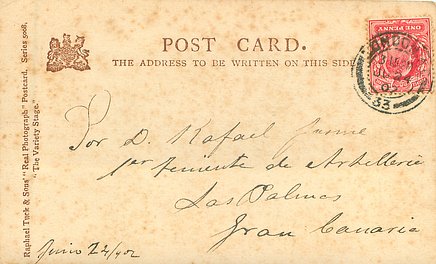 POST CARD.
THE ADDRESS TO BE WRITTEN ON THIS SIDE
Raphael Tuck & Sons' "Real Photograph" Postcard. Series 5008.
"The Variety Stage."
ONE PENNY
LONDON
33
Por D. Rafael
1er teniente de Artilleria
Las Palmas
Gran Canaria
Junio 24/902